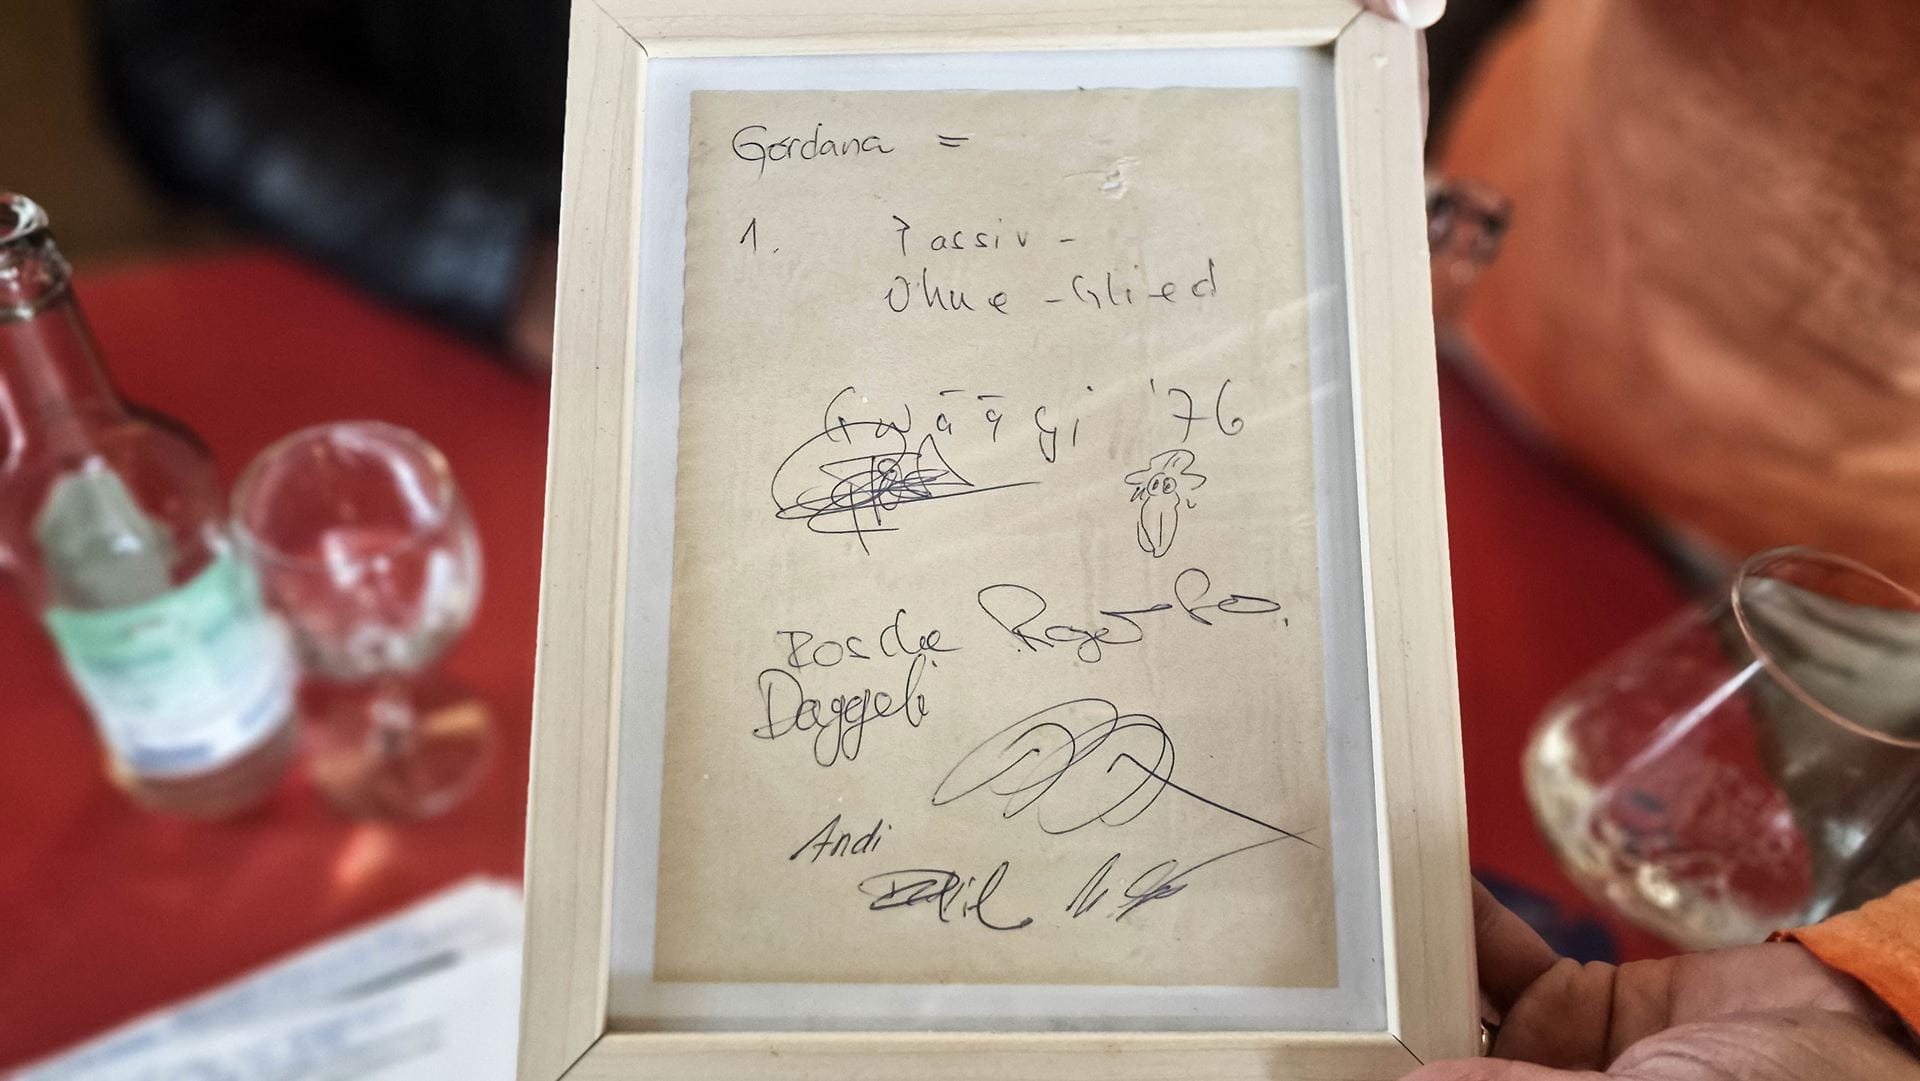 Gordana =
1. Passiv -
Ohne - Glied
Gwäägi '76
Roger
Daggeli
Andi